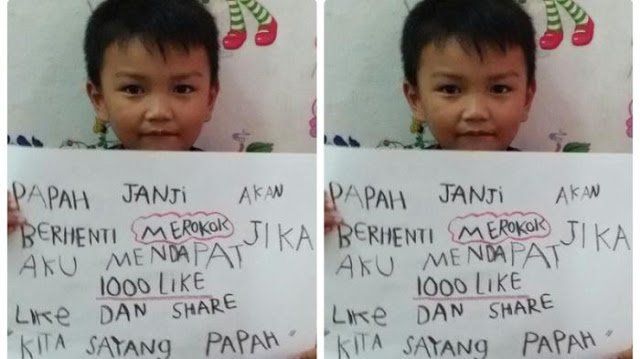 PAPAH JANJI AKAN
BERHENTI MEROKOK JIKA
AKU MENDAPAT
1000 LIKE
LIKE DAN SHARE
"KITA SAYANG PAPAH"
PAPAH JANJI AKAN
BERHENTI MEROKOK JIKA
AKU MENDAPAT
1000 LIKE
LIKE DAN SHARE
KITA SAYANG PAPAH"